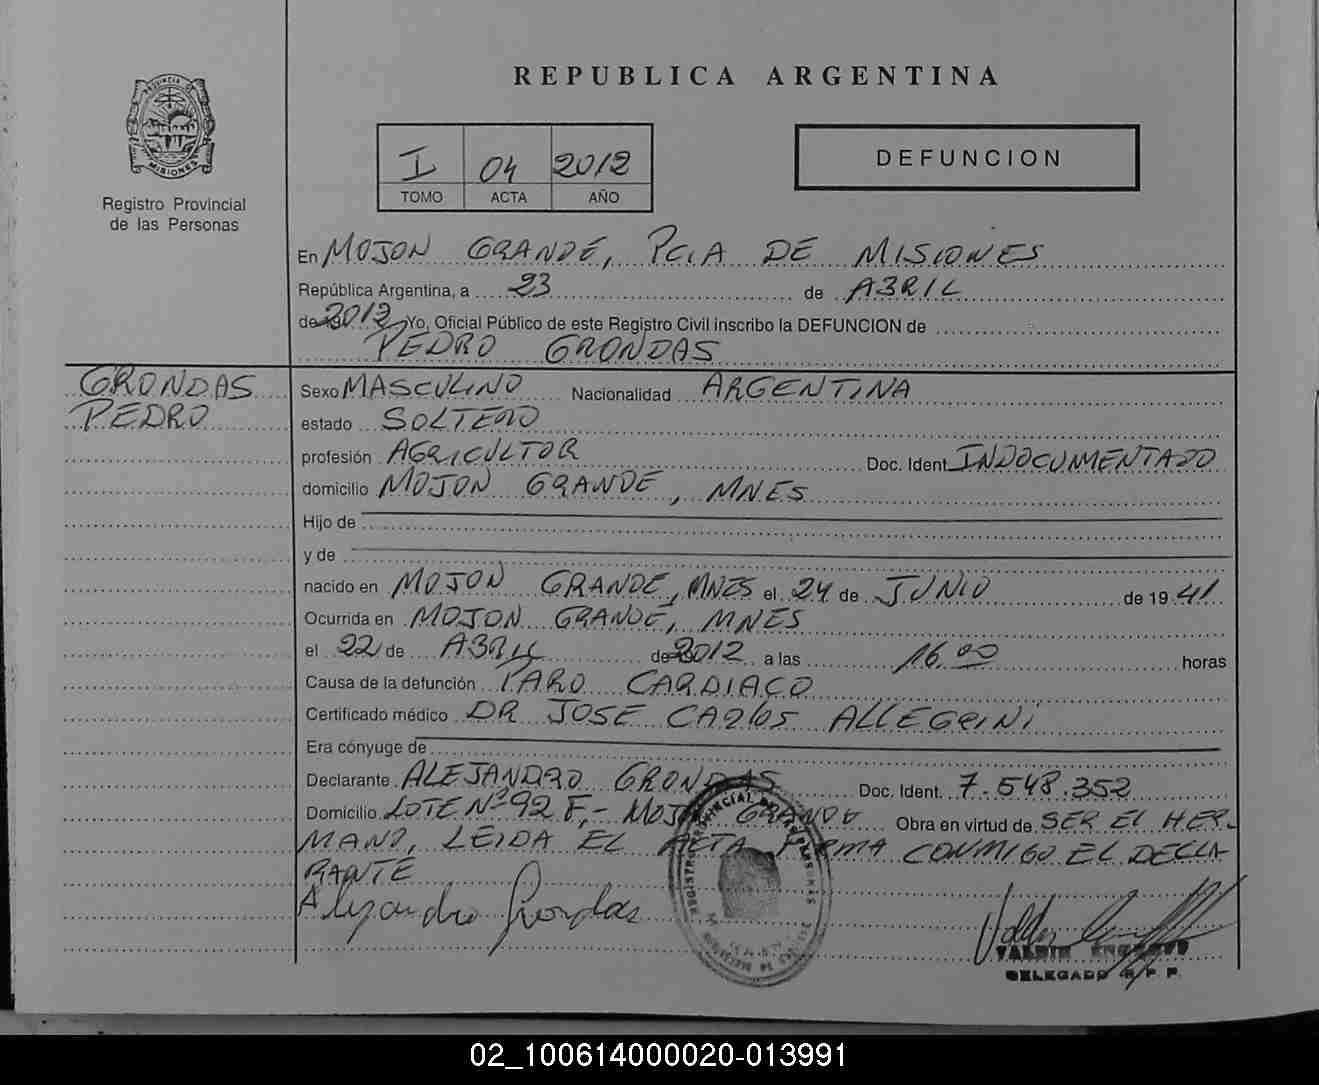 REPUBLICA ARGENTINA
PROVINCIA DE
MISIONES
Registro Provincial
de las Personas
I 04 2012
TOMO ACTA AÑO
DEFUNCION
En MOJON GRANDE, PCIA DE MISIONES
República Argentina, a 23 de ABRIL
de 2012 Yo, Oficial Público de este Registro Civil inscribo la DEFUNCION de
PEDRO GRONDAS
GRONDAS
PEDRO
Sexo MASCULINO Nacionalidad ARGENTINA
estado SOLTERO
profesión AGRICULTOR Doc. Ident. INDOCUMENTADO
domicilio MOJON GRANDE, MNES
Hijo de
y de
nacido en MOJON GRANDE, MNES el 24 de JUNIO de 1941
Ocurrida en MOJON GRANDE, MNES
el 22 de ABRIL de 2012 a las 16.00 horas
Causa de la defunción PARO CARDIACO
Certificado médico DR JOSE CARLOS ALLEGRINI
Era cónyuge de
Declarante ALEJANDRO GRONDAS Doc. Ident. 7.548.352
Domicilio LOTE Nº 92 F,- MOJON GRANDE Obra en virtud de SER EL HER-
MANO, LEIDA EL ACTA FIRMA CONMIGO EL DECLA
RANTE
Alejandro Grondas
REGISTRO PROVINCIAL DE LAS PERSONAS
DELEGADO R.P.P.
02_100614000020-013991